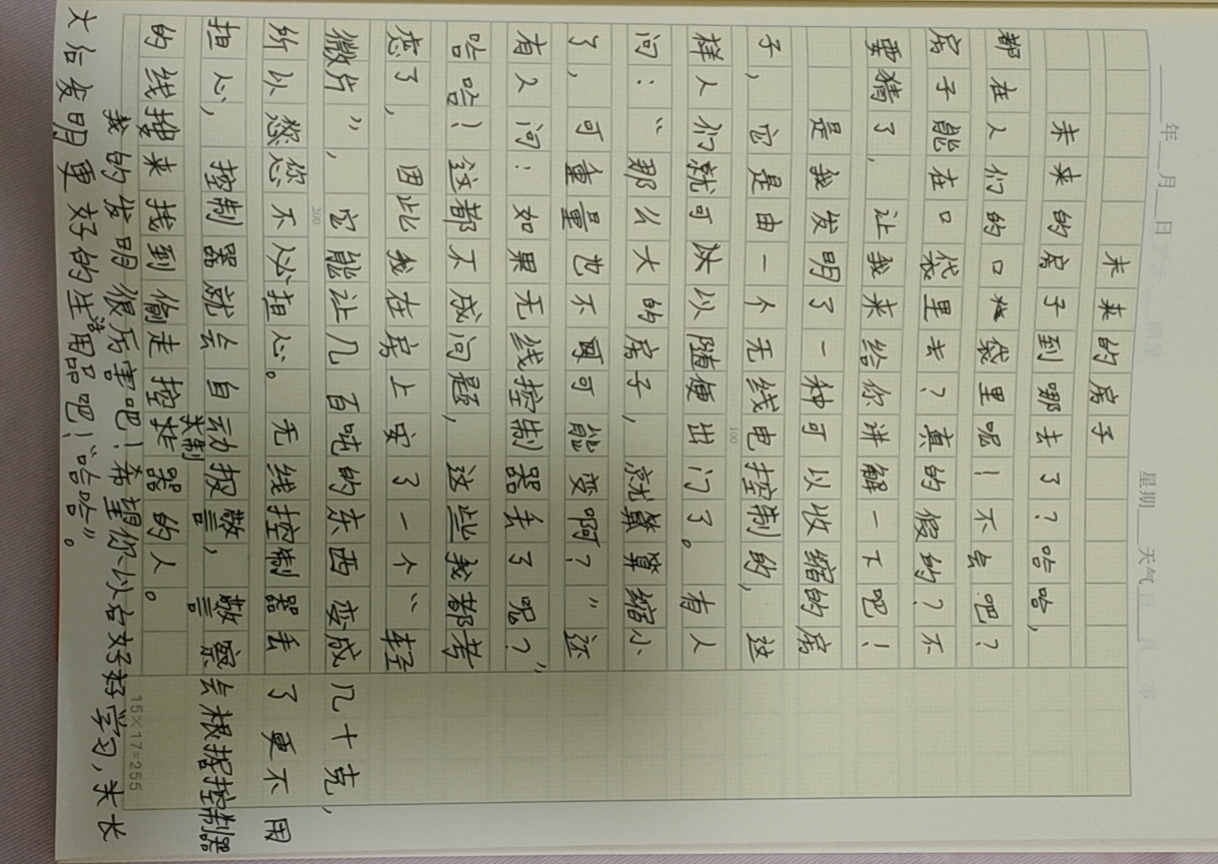 年 月 日 星期 天气
未来的房子
未来的房子到哪去了？哈哈，
都在人们的口袋里呢！不会吧？
房子能在口袋里去？真的假的？不
要猜了，让我来给你讲解一下吧！
是我发明了一种可以收缩的房
子，它是由一个无线电控制的，这
样人们就可以随便出门了。有人
问：“那么大的房子，就算缩小
了，可重量也不可能变啊？”还
有人问：如果无线控制器丢了呢？”
哈哈！这都不成问题，这些我都考
虑了，因此我在房上安了一个“轻
微片”，它能让几百吨的东西变成几十克，
所以您不必担心。无线控制器丢了更不用
担心，控制器就会自动报警，警察会根据控制器
的线搜来找到偷走控制器的人。
我的发明很厉害吧！希望你以后好好学习，长
大后发明更好的生活用品吧！“哈哈”。
100
200
15×17=255